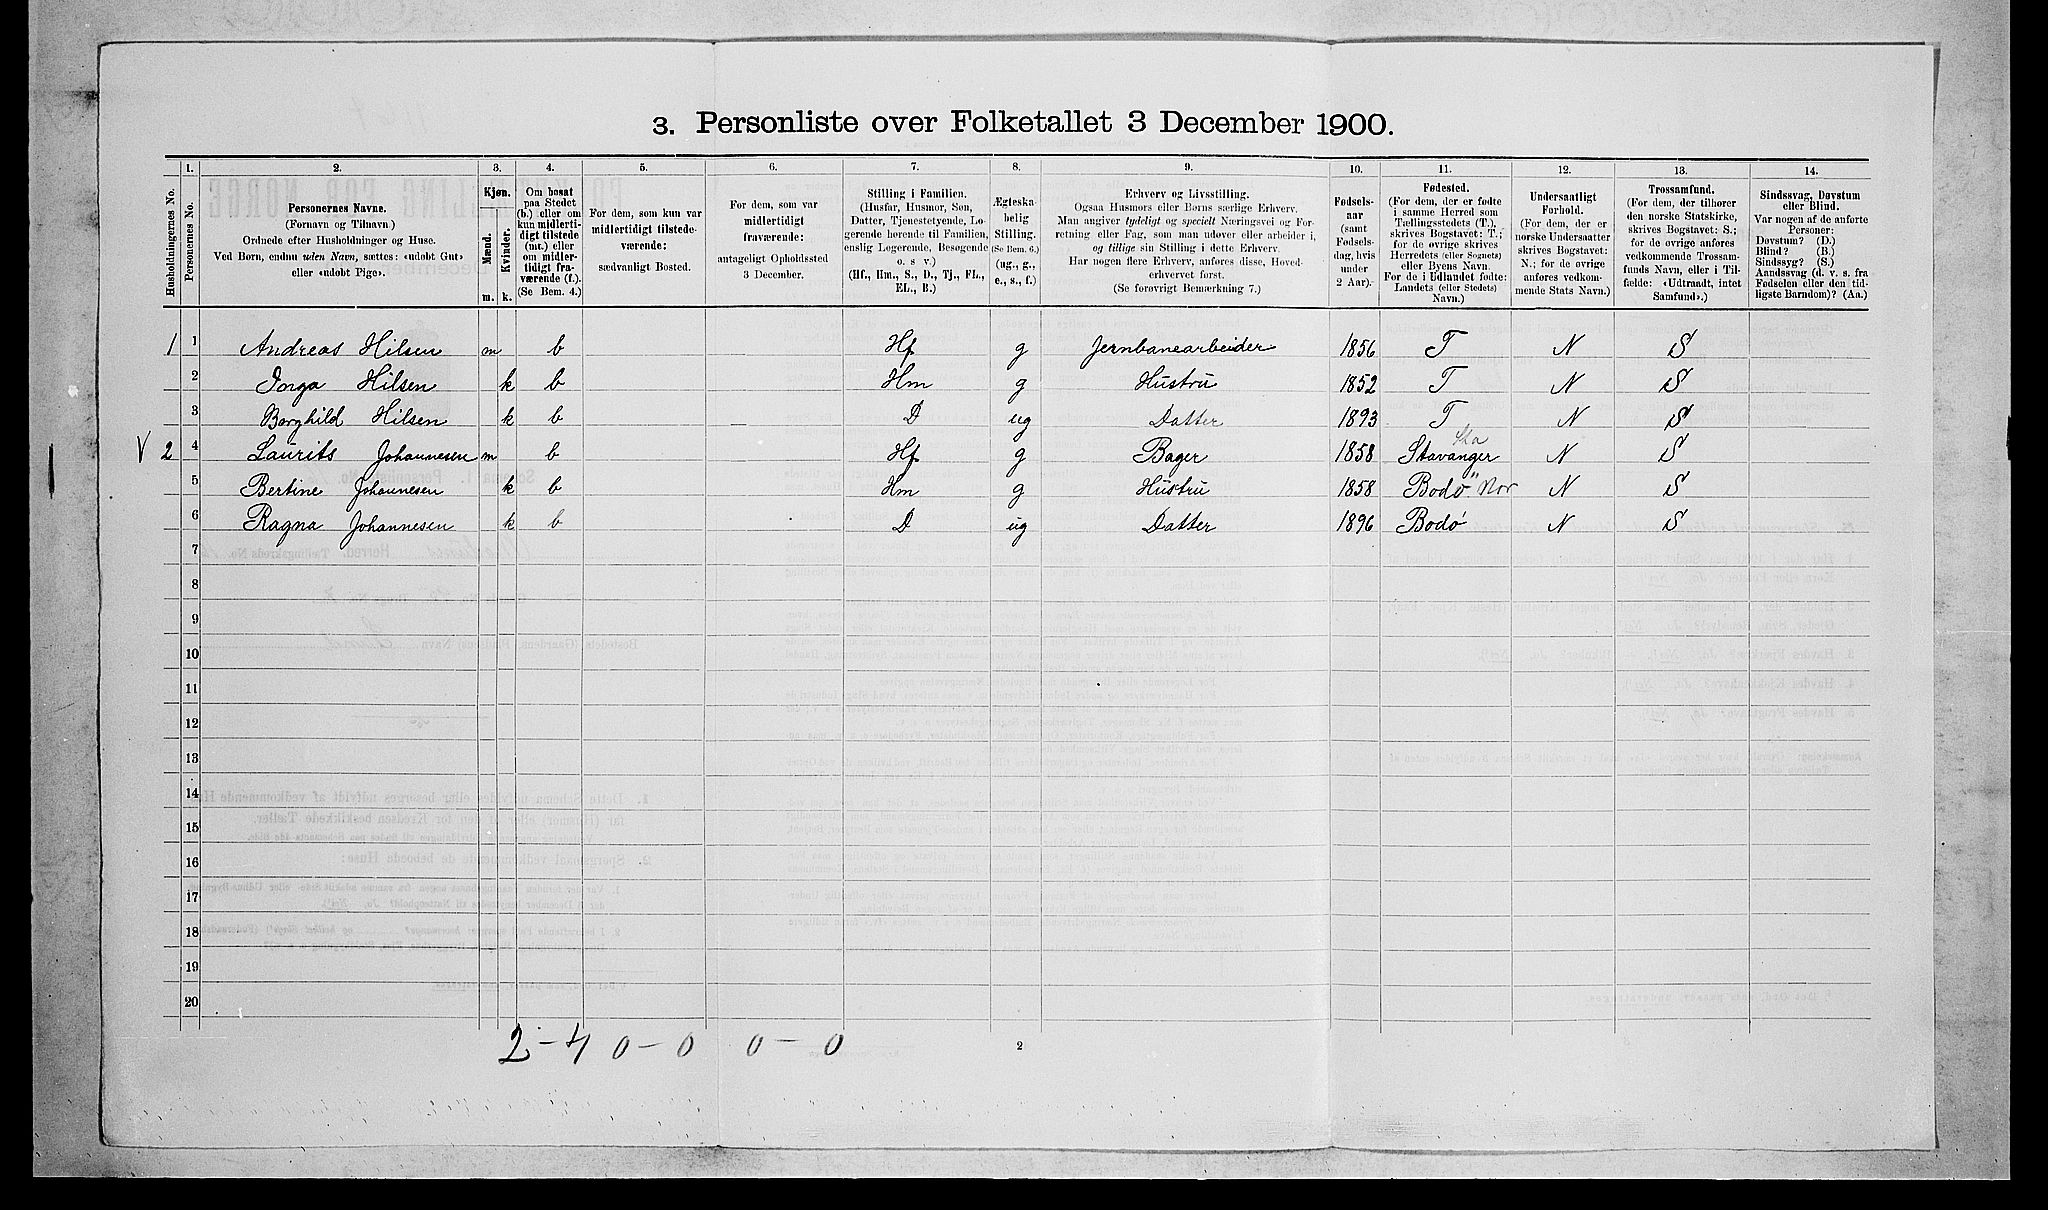 3. Personliste over Folketallet 3 December 1900.
Husholdningernes No.
1. Personernes No.
2. Personernes Navne.
(Fornavn og Tilnavn.)
Ordnede efter Husholdninger og Huse.
Ved Børn, endnu uden Navn, sættes: «udøbt Gut»
eller «udøbt Pige».
3. Kjøn.
Mænd. Kvinder.
m. k.
4. Om bosat
paa Stedet
(b.) eller om
kun midlerti-
digt tilstede
(mt.) eller
om midler-
tidigt fra-
værende (f.).
(Se Bem. 4.)
5. For dem, som kun var
midlertidigt tilstede-
værende:
sædvanligt Bosted.
6. For dem, som var
midlertidigt
fraværende:
antageligt Opholdssted
3 December.
7. Stilling i Familien.
(Husfar, Husmor, Søn,
Datter, Tjenestetyende, Lo-
gerende hørende til Familien,
enslig Logerende, Besøgende
o. s. v.)
(Hf., Hm., S., D., Tj., FL.,
EL., B.)
8. Ægteska-
belig
Stilling.
(Se Bem. 6.)
(ug., g.,
e., s., f.)
9. Erhverv og Livsstilling.
Ogsaa Husmors eller Børns særlige Erhverv.
Man angiver tydeligt og specielt Næringsvei og For-
retning eller Fag, som man udøver eller arbeider i,
og tillige sin Stilling i dette Erhverv.
Har nogen flere Erhverv, anføres disse, Hoved-
erhvervet først.
(Se forøvrigt Bemærkning 7.)
10. Fødsels-
aar
(samt
Fødsels-
dag, hvis
under
2 Aar).
11. Fødested.
(For dem, der er fødte
i samme Herred som
Tællingsstedets (T.),
skrives Bogstavet: T.;
for de øvrige skrives
Herredets (eller Sognets)
eller Byens Navn.
For de i Udlandet fødte:
Landets (eller Stedets)
Navn.)
12. Undersaatligt
Forhold.
(For dem, der er
norske Undersaatter
skrives Bogstavet:
N.; for de øvrige
anføres vedkom-
mende Stats Navn.)
13. Trossamfund.
(For dem, der tilhører
den norske Statskirke,
skrives Bogstavet: S.;
for de øvrige anføres
vedkommende Trossam-
funds Navn, eller i Til-
fælde: «Udtraadt, intet
Samfund».)
14. Sindssvag, Døvstum
eller Blind.
Var nogen af de anførte
Personer:
Døvstum? (D.)
Blind? (B.)
Sindssyg? (S.)
Aandssvag (d. v. s. fra
Fødselen eller den tid-
ligste Barndom)? (Aa.)
1 1 Andreas Hilsen m b Hf g Jernbanearbeider 1856 T N S
2 Inga Hilsen k b Hm g Hustru 1852 T N S
3 Borghild Hilsen k b D ug Datter 1893 T N S
V 2 4 Laurits Johannesen m b Hf g Bager 1858 Stavanger Sta N S
5 Bertine Johannesen k b Hm g Hustru 1858 Bodø Nor N S
6 Ragna Johannesen k b D ug Datter 1896 Bodø N S
7
8
9
10
11
12
13
14
15
16
17
18
19
20
2 - 4 0 - 0 0 - 0
2